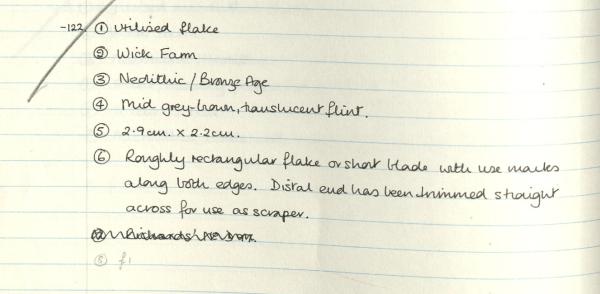 -122. ① Utilised flake
② Wick Farm
③ Neolithic / Bronze Age
④ Mid grey-brown, translucent flint.
⑤ 2.9cm. x 2.2cm.
⑥ Roughly rectangular flake or short blade with use marks
along both edges. Distal end has been trimmed straight
across for use as scraper.
⑦ Richards
⑧ f1